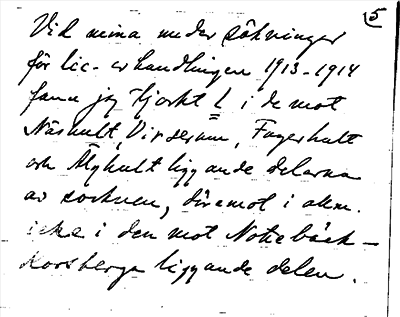 5
Vid mina undersökningar
för lic-avhandlingen 1913-1914
fann jag tjockt l i de mot
Näshult, Virserum, Fagerhult
och Älghult liggande delarna
av socknen, däremot i allm.
icke i den mot Nottebäck-
Korsberga liggande delen.